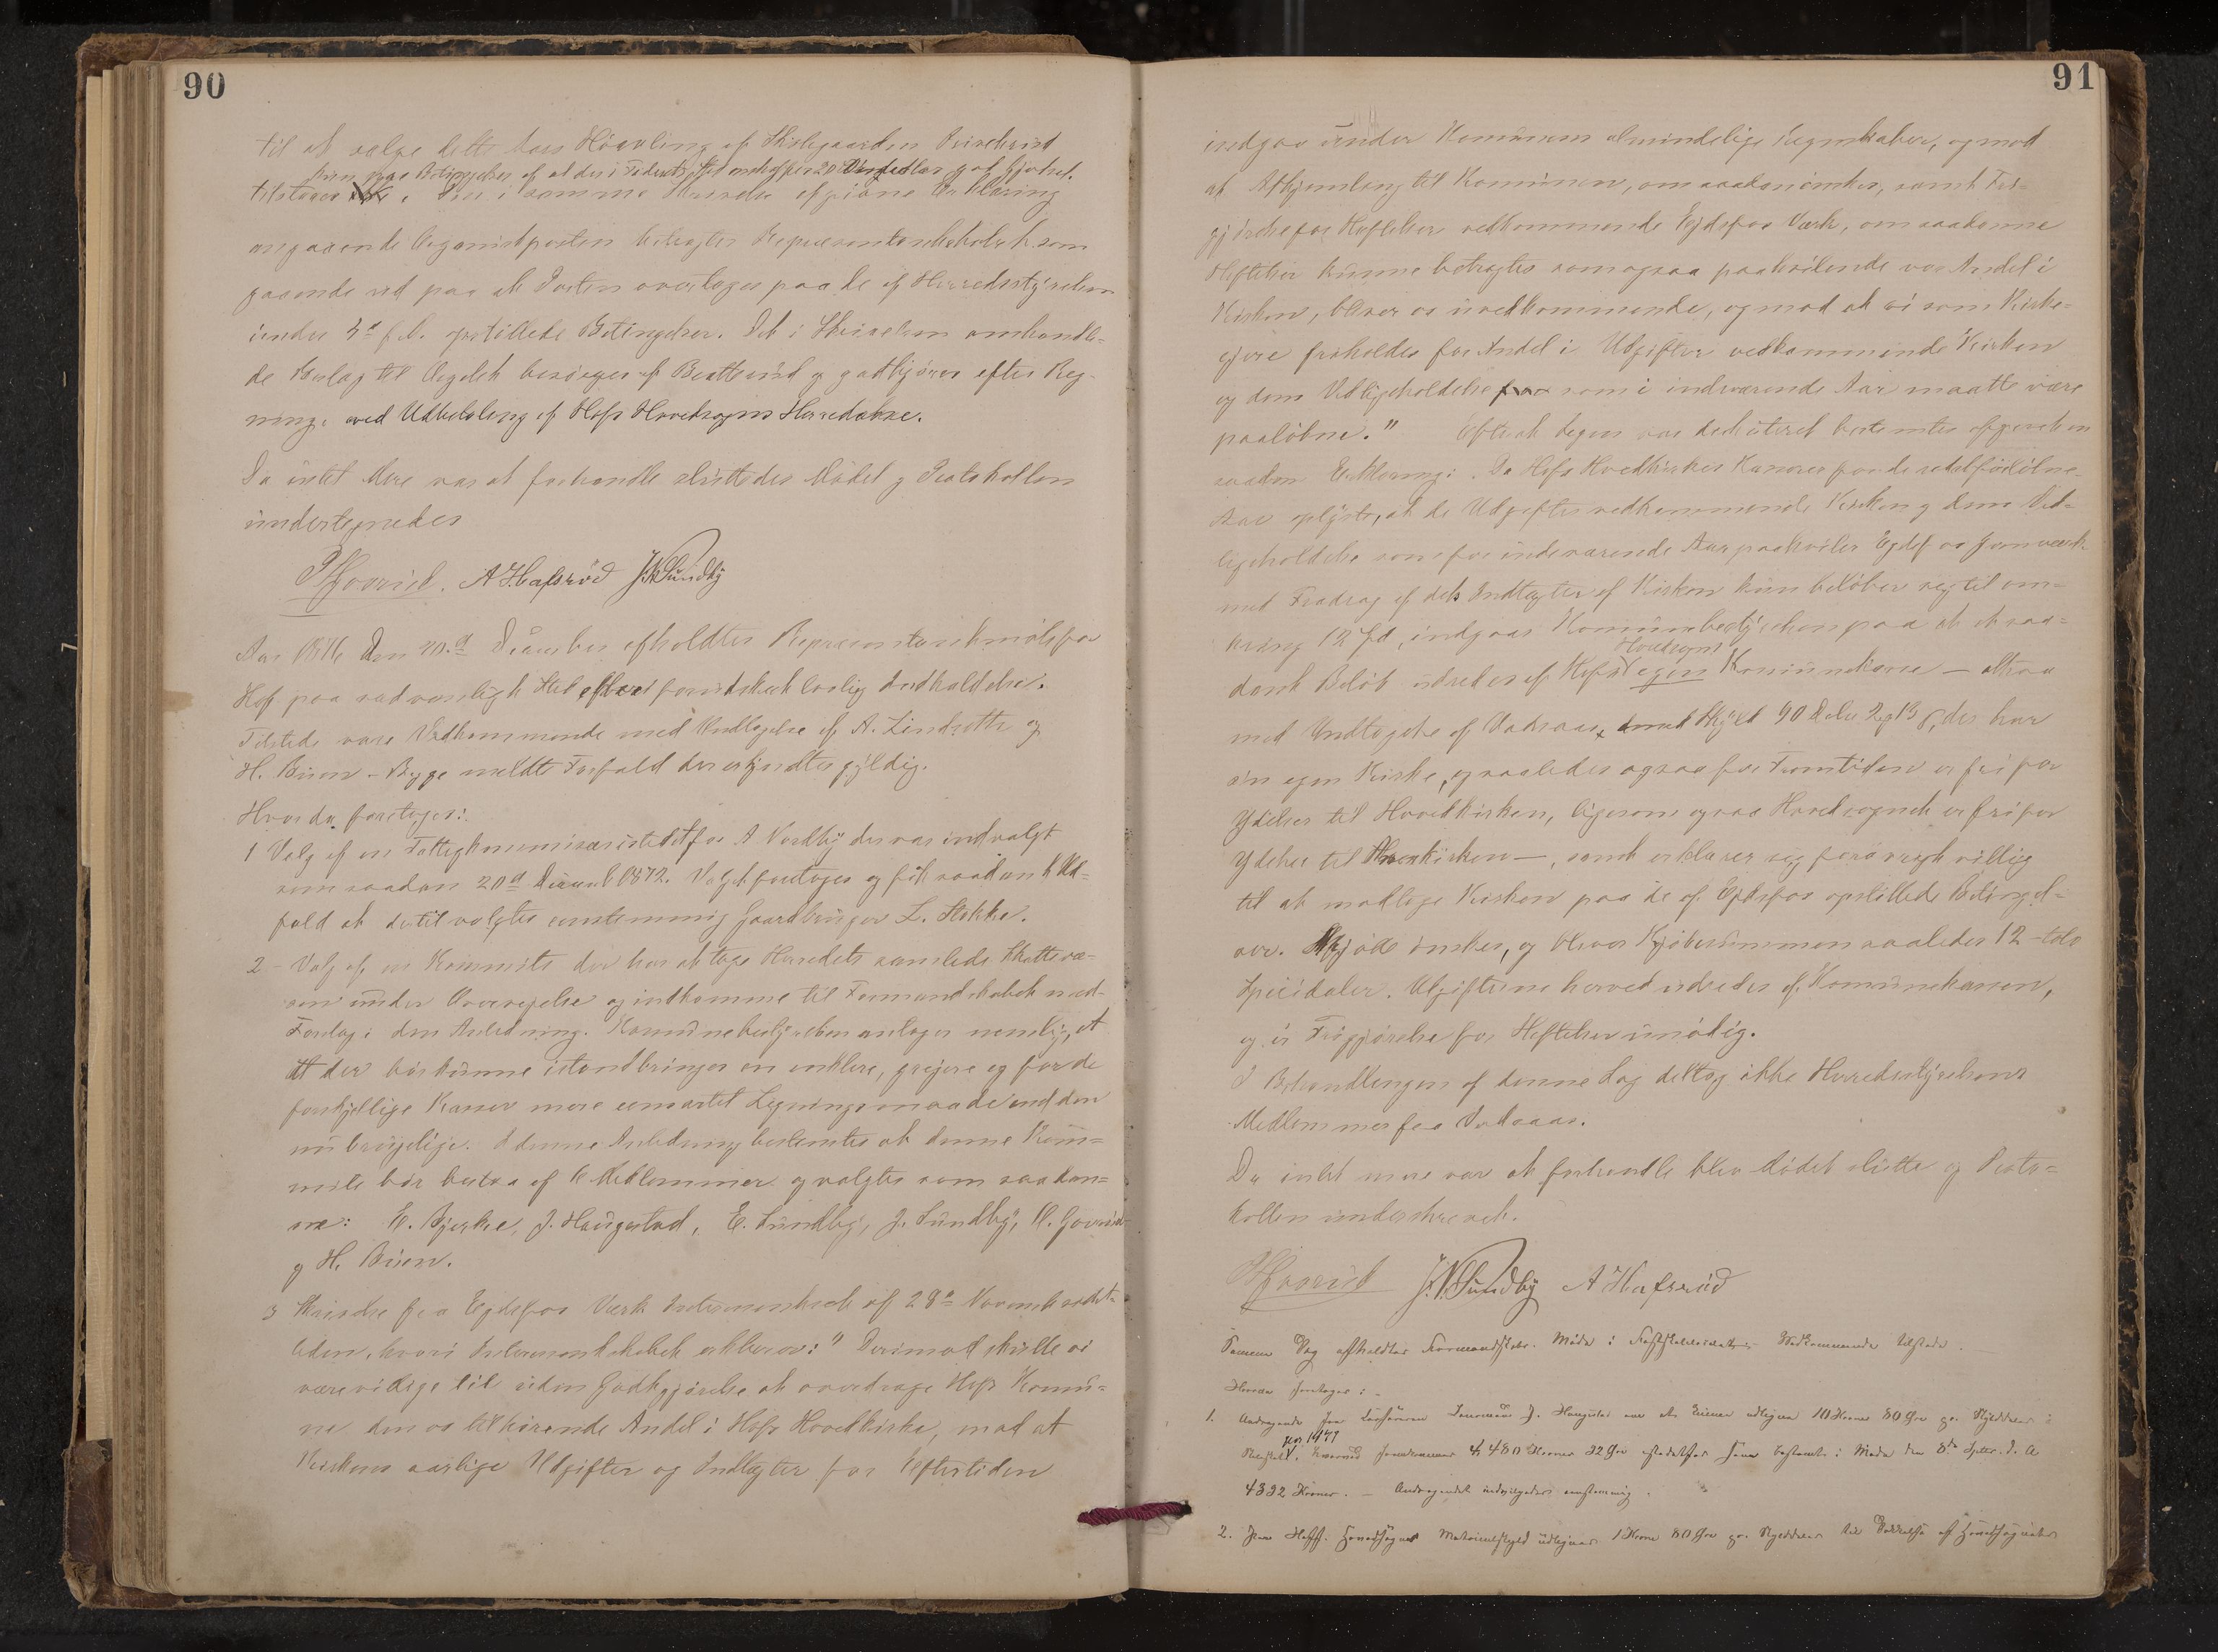 90
til at sælge dette Aars Hövling af Skolegaarden
tilstaaes. Den i samme Skrivelse afgivne Erklæring
angaaende Organistposten betragter Repræsentantskabet som
gaaende ud paa at Posten overtages paa de af Herredsstyrelsen
under 3die f. M. opstillede Betingelser. Det i Skrivelsen omhandle-
de Beslag til Orgelet besörges af Beatterud og godtgjöres efter Reg-
ning. ved Udbetaling af Hofs Hovedsogns Herredskasse.
Da intet mere var at forhandle sluttedes Mödet og Protokollen
undertegnedes
A Hafsröd J.N. Sundby
Aar 1876 den 20.de December afholdtes Repræsentantskabsmöde for
Hof paa sædvanligt Sted efter forudskeet lovlig
Tilstede vare Vedkommende med Undtagelse af A. Lindseth og
H. Buen - Bygge meldte Forfald der erkjendtes gyldig.
Hvorda foretoges:
1 Valg af en Fattigkommissær istedetfor A Nordby der var indvalgt
som saadan 20de Decemb 1872. Valget foretoges og fik saadant Ud-
fald at dertil valgtes eenstemmig Gaardbruger L. Stokke.
2 - Valg af en Kommite der har at tage Herredets samlede Skattevæ-
sen under Overveielse og indkomme til Formandskabet med
Forslag i den Anledning. Kommunebestyrelsen antager nemlig, at
at der bör kunne istandbringes en enklere, greiere og for de
forskjellige Kasser mere eensartet Ligningsmaade end den
nu brugelige. I denne Anledning bestemtes at denne Kom=
mite bör bestaa af 6 Medlemmer og valgtes som saadan=
ne: E. Bjerke, J. Haugestad, E. Sundby, J. Sundby,
og H. Buen.
3 Skrivelse fra Eydsfos Værk Interessentskab af 28de Novemb sidst-
leden, hvori Interessentskabet erklærer: "Derimod skulle vi
være villige til uden Godtgjörelse at overdrage Hofs Kommu=
ne den os tilhörende Andel i Hofs Hovedkirke, mod at
Kirkens aarlige Udgifter og Indtægter for Eftertiden
91
indgaar under Kommunens almindelige Regnskaber, og mod
at Afhjemling til Kommunen, om saadan önskes, samt Fri-
gjörelse for Heftelser vedkommende Eydsfos Værk, om saadanne
Heftelser kunne betragtes som ogsaa paahvilende vor Andel i
Kirken, bliver os uvedkommende, og mod at vi som Kirke=
ejere friholdes for Andel i Udgifter vedkommende Kirken
og dens Vedligeholdelse som i indværende Aar maatte være
paalöbne." Efterat Sagen var diskuteret bestemtes afgivet en
saadan Erklæring: Da Hofs Hovedkirkes Kasserer for de sidstforlöbne
Aar oplyste, at de Udgifter vedkommende Kirken og dens Ved=
ligeholdelse som for indeværende Aar paahviler Eydsfos Jernværk
med Fradrag af dets Indtægter af Kirken kun belöber sig til om-
kring 12 Spd, indgaar Kommunebestyrelsen paa at et saa=
dant Belöb udredes af Hofs Hovedsogns egen Kommunekasse — altsaa
med Undtagelse af Vasaas, Skyld 90 Daler 2 13 ß, der har
sin egen Kirke, og saaledes ogsaa for Fremtiden er fri for
Ydelser til Hovedkirken, ligesom ogsaa Hovedsognet er fri for
Ydelser til Anexkirken —, samt erklærer sig forövrigt villig
til at modtage Kirken paa de af Eydsfos opstillede Betingel=
ser. Skjöde önskes, og bliver Kjöbesummen saaledes 12 - tolv
Speciedaler. Udgifterne herved udredes af Kommunekassen,
og er Frigjörelse for Heftelser unödig.
I Behandlingen af denne Sag deltog ikke Herredsstyrelsens
Medlemmer fra Vasaas.
Da intet mere var at forhandle blev Mödet sluttet og Proto=
kollen underskrevet.
J.N. Sundby A Hafsröd
Samme Dag afholdtes Formandskabs Möde i Vedkommende tilstede.
Hvorda foretoges:
1. Andragende fra J. Haugestad om at udligne 10 Kroner 80 Öre pr. Skylddaler i
for 1877
4,480 Kroner 32 Öre istedetfor som bestemt i Möde den 8de Septbr. d. A
4392 Kroner. — Andragendet indvilgedes eenstemmig.
2. Paa Hofs Hovedsogns Matrikulskyld udlignes 1 Krone 80 Öre pr. Skylddaler til af Hovedsognets